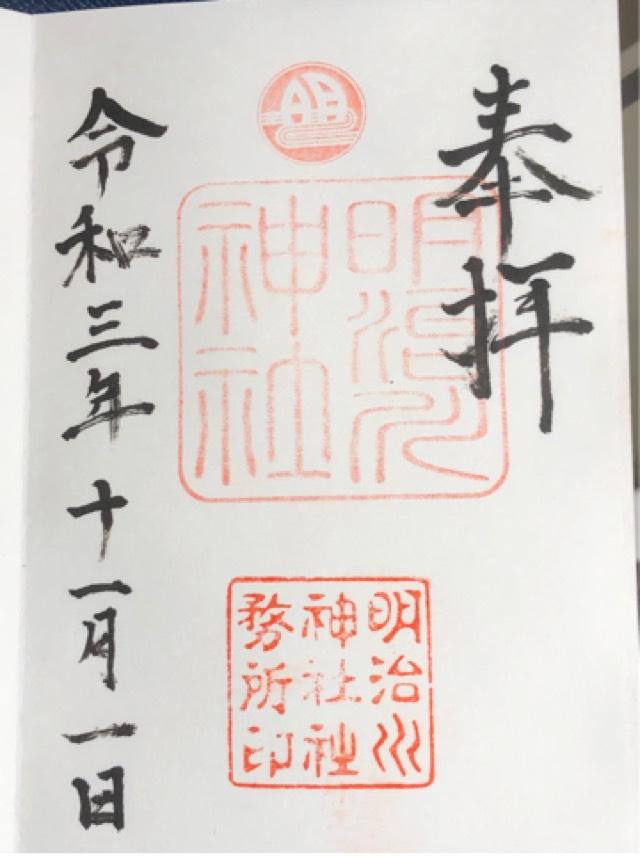 奉拝
明治川
神社
明治川
神社社
務所印
令和三年十一月一日